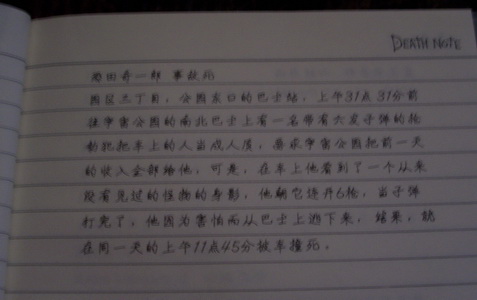 DEATH NOTE
恐田奇一郎 事故死
园区三丁目，公园东口的巴士站，上午31点31分前
往宇宙公园的南北巴士上有一名带有六发子弹的枪
劫犯把车上的人当成人质，要求宇宙公园把前一天
的收入全部给他，可是，在车上他看到了一个从来
没有见过的怪物的身影，他朝它连开6枪，当子弹
打完了，他因为害怕而从巴士上逃下来，结果，就
在同一天的上午11点45分被车撞死．